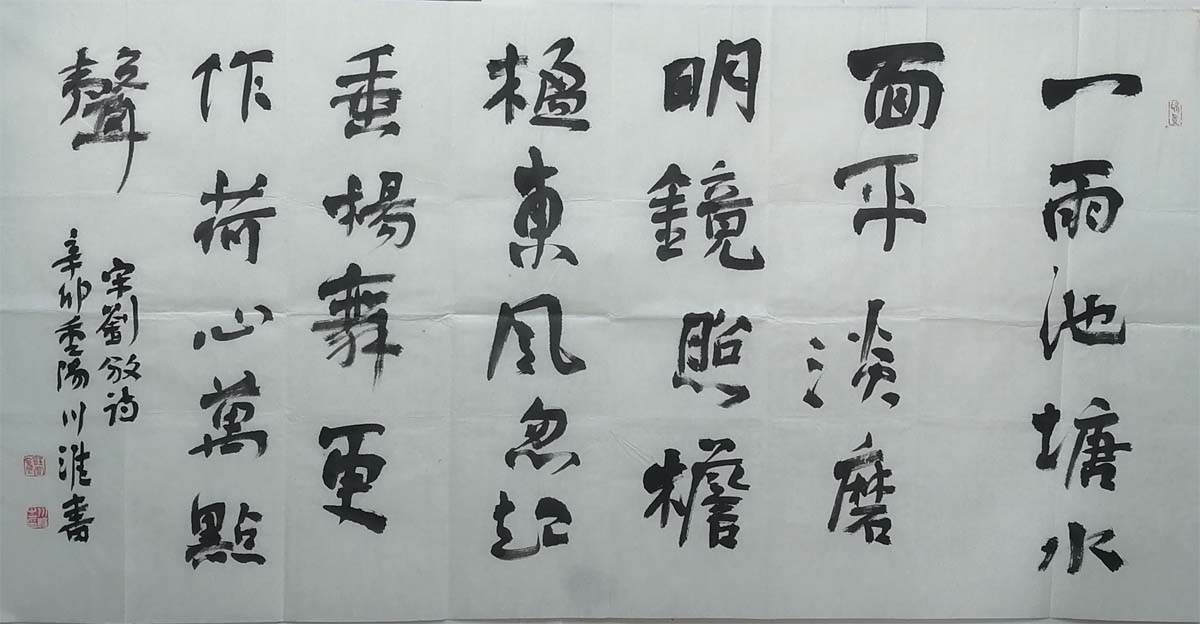 一雨池塘水
面平淡磨
明鏡照檐
楹東風忽起
垂楊舞更
作荷心萬點
聲
宋劉攽诗
辛卯重陽川淮書